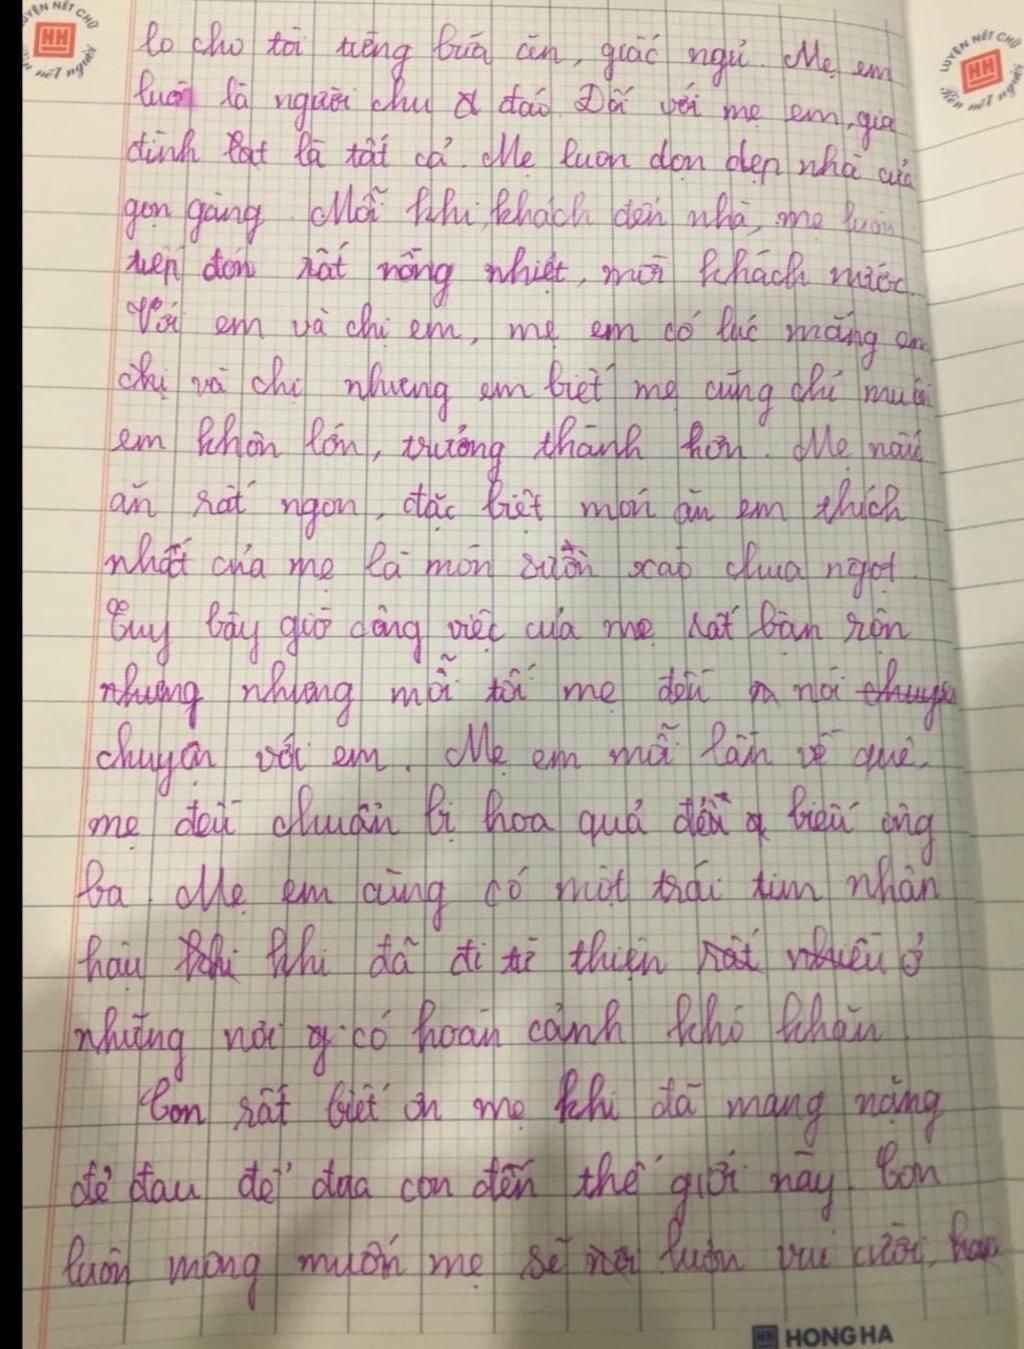 LUYỆN NÉT CHỮ
HH
Rèn nết người
LUYỆN NÉT CHỮ
HH
Rèn nết người
lo cho tôi từng bữa ăn, giấc ngủ. Mẹ em
luôn là người chu đáo. Đối với mẹ em, gia
đình là tất cả. Mẹ luôn dọn dẹp nhà cửa
gọn gàng. Mỗi khi khách đến nhà, mẹ luôn
tiếp đón rất nồng nhiệt, mời khách nước.
Với em và chị em, mẹ em có lúc mắng em
chị và chị nhưng em biết mẹ cũng chỉ muốn
em khôn lớn, trưởng thành hơn. Mẹ nấu
ăn rất ngon, đặc biệt món ăn em thích
nhất của mẹ là món sườn xào chua ngọt.
Tuy bây giờ công việc của mẹ rất bận rộn
nhưng nhưng mỗi tối mẹ đều nói chuyện
chuyện với em. Mẹ em mỗi lần về quê,
mẹ đều chuẩn bị hoa quả để biếu ông
bà. Mẹ em cũng có một trái tim nhân
hậu khi khi đã đi từ thiện rất nhiều ở
những nơi có hoàn cảnh khó khăn.
Con rất biết ơn mẹ khi đã mang nặng
đẻ đau để đưa con đến thế giới này. Con
luôn mong muốn mẹ sẽ luôn vui cười,
HH HONG HA